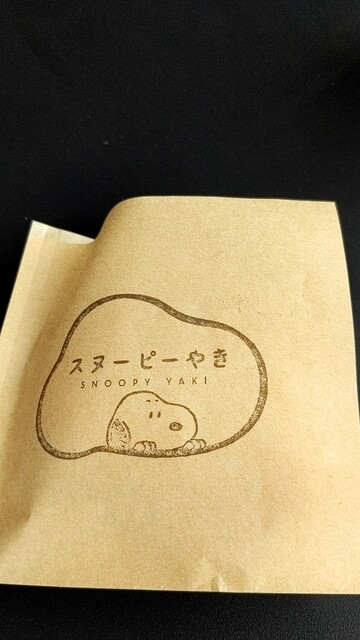 スヌーピーやき
SNOOPY YAKI